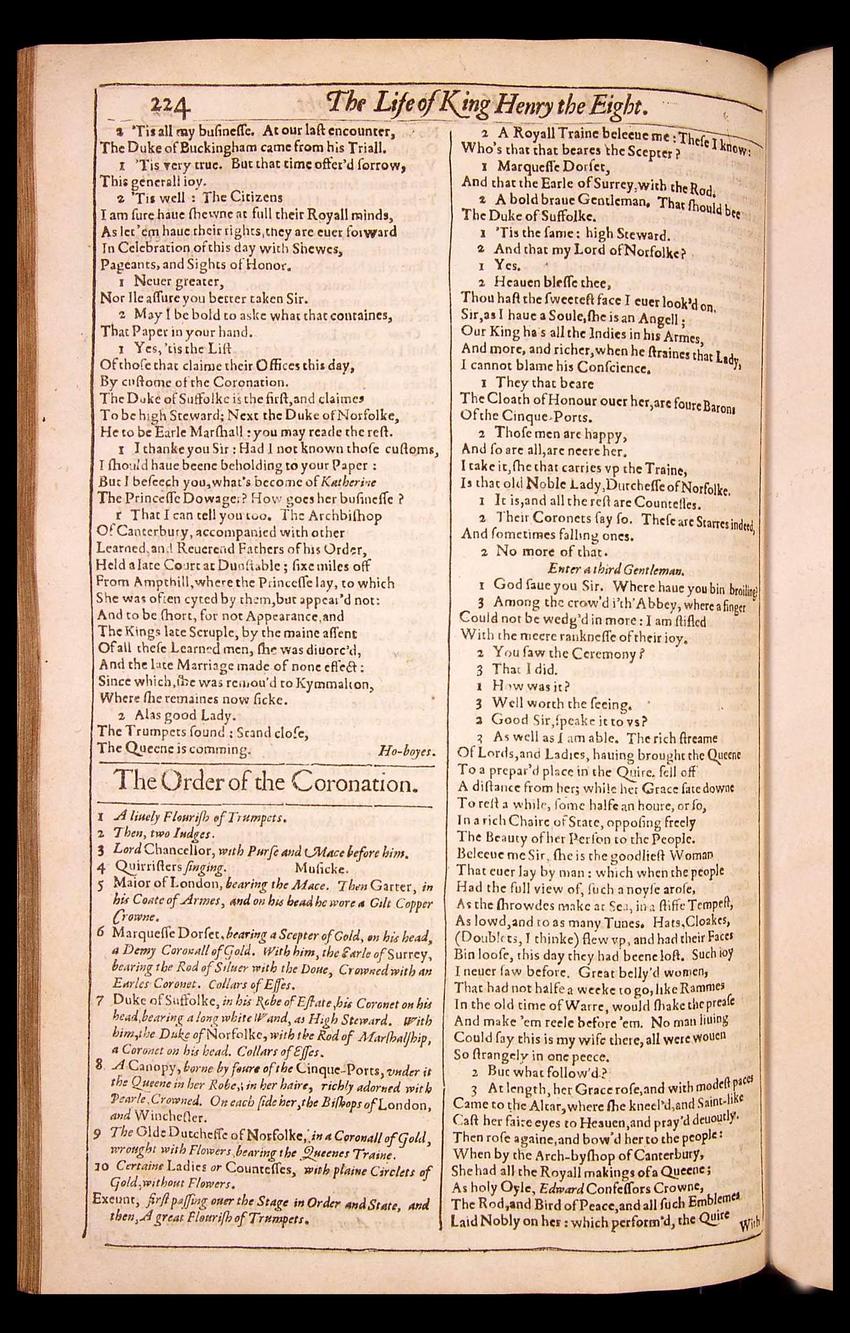 224
The Life of King Henry the Eight.
2 'Tis all my businesse. At our last encounter,
The Duke of Buckingham came from his Triall.
1 'Tis very true. But that time offer'd sorrow,
This generall ioy.
2 'Tis well : The Citizens
I am sure haue shewne at full their Royall minds,
As let 'em haue their rights, they are euer forward
In Celebration of this day with Shewes,
Pageants, and Sights of Honor.
1 Neuer greater,
Nor Ile assure you better taken Sir.
2 May I be bold to aske what that containes,
That Paper in your hand.
1 Yes, 'tis the List
Of those that claime their Offices this day,
By custome of the Coronation.
The Duke of Suffolke is the first, and claimes
To be high Steward; Next the Duke of Norfolke,
He to be Earle Marshall : you may reade the rest.
1 I thanke you Sir : Had I not known those customs,
I should haue beene beholding to your Paper :
But I beseech you, what's become of Katherine
The Princesse Dowager? How goes her businesse ?
1 That I can tell you too. The Archbishop
Of Canterbury, accompanied with other
Learned, and Reuerend Fathers of his Order,
Held a late Court at Dunstable ; sixe miles off
From Ampthill, where the Princesse lay, to which
She was often cyted by them, but appear'd not:
And to be short, for not Appearance, and
The Kings late Scruple, by the maine assent
Of all these Learned men, she was diuorc'd,
And the late Marriage made of none effect :
Since which, she was remou'd to Kymmalton,
Where she remaines now sicke.
2 Alas good Lady.
The Trumpets sound : Stand close,
The Queene is comming. Ho-boyes.
The Order of the Coronation.
1 A liuely Flourish of Trumpets.
2 Then, two Iudges.
3 Lord Chancellor, with Purse and Mace before him.
4 Quirristers singing. Musicke.
5 Maior of London, bearing the Mace. Then Garter, in
his Coate of Armes, and on his head he wore a Gilt Copper
Crowne.
6 Marquesse Dorset, bearing a Scepter of Gold, on his head,
a Demy Coronall of Gold. With him, the Earle of Surrey,
bearing the Rod of Siluer with the Doue, Crowned with an
Earles Coronet. Collars of Esses.
7 Duke of Suffolke, in his Robe of Estate, his Coronet on his
head, bearing a long white Wand, as High Steward. With
him, the Duke of Norfolke, with the Rod of Marshalship,
a Coronet on his head. Collars of Esses.
8 A Canopy, borne by foure of the Cinque-Ports, vnder it
the Queene in her Robe, in her haire, richly adorned with
Pearle, Crowned. On each side her, the Bishops of London,
and Winchester.
9 The Olde Dutchesse of Norfolke, in a Coronall of Gold,
wrought with Flowers bearing the Queenes Traine.
10 Certaine Ladies or Countesses, with plaine Circlets of
Gold, without Flowers.
Exeunt, first passing ouer the Stage in Order and State, and
then, A great Flourish of Trumpets.
2 A Royall Traine beleeue me : These I know:
Who's that that beares the Scepter ?
1 Marquesse Dorset,
And that the Earle of Surrey, with the Rod.
2 A bold braue Gentleman. That should bee
The Duke of Suffolke.
1 'Tis the same: high Steward.
2 And that my Lord of Norfolke?
1 Yes.
2 Heauen blesse thee,
Thou hast the sweetest face I euer look'd on.
Sir, as I haue a Soule, she is an Angell ;
Our King has all the Indies in his Armes,
And more, and richer, when he straines that Lady,
I cannot blame his Conscience.
1 They that beare
The Cloath of Honour ouer her, are foure Barons
Of the Cinque-Ports.
2 Those men are happy,
And so are all, are neere her.
I take it, she that carries vp the Traine,
Is that old Noble Lady, Dutchesse of Norfolke.
1 It is, and all the rest are Countesses.
2 Their Coronets say so. These are Starres indeed,
And sometimes falling ones.
2 No more of that.
Enter a third Gentleman.
1 God saue you Sir. Where haue you bin broiling?
3 Among the crow'd i'th'Abbey, where a finger
Could not be wedg'd in more : I am stifled
With the meere ranknesse of their ioy.
2 You saw the Ceremony ?
3 That I did.
1 How was it?
3 Well worth the seeing.
2 Good Sir, speake it to vs?
3 As well as I am able. The rich streame
Of Lords, and Ladies, hauing brought the Queene
To a prepar'd place in the Quire, fell off
A distance from her; while her Grace sate downe
To rest a while, some halfe an houre, or so,
In a rich Chaire of State, opposing freely
The Beauty of her Person to the People.
Beleeue me Sir, she is the goodliest Woman
That euer lay by man : which when the people
Had the full view of, such a noyse arose,
As the shrowdes make at Sea, in a stiffe Tempest,
As lowd, and to as many Tunes. Hats, Cloakes,
(Doublets, I thinke) flew vp, and had their Faces
Bin loose, this day they had beene lost. Such ioy
I neuer saw before. Great belly'd women,
That had not halfe a weeke to go, like Rammes
In the old time of Warre, would shake the prease
And make 'em reele before 'em. No man liuing
Could say this is my wife there, all were wouen
So strangely in one peece.
2 But what follow'd ?
3 At length, her Grace rose, and with modest paces
Came to the Altar, where she kneel'd, and Saint-like
Cast her faire eyes to Heauen, and pray'd deuoutly.
Then rose againe, and bow'd her to the people :
When by the Arch-byshop of Canterbury,
She had all the Royall makings of a Queene;
As holy Oyle, Edward Confessors Crowne,
The Rod, and Bird of Peace, and all such Emblemes
Laid Nobly on her : which perform'd, the Quire
With